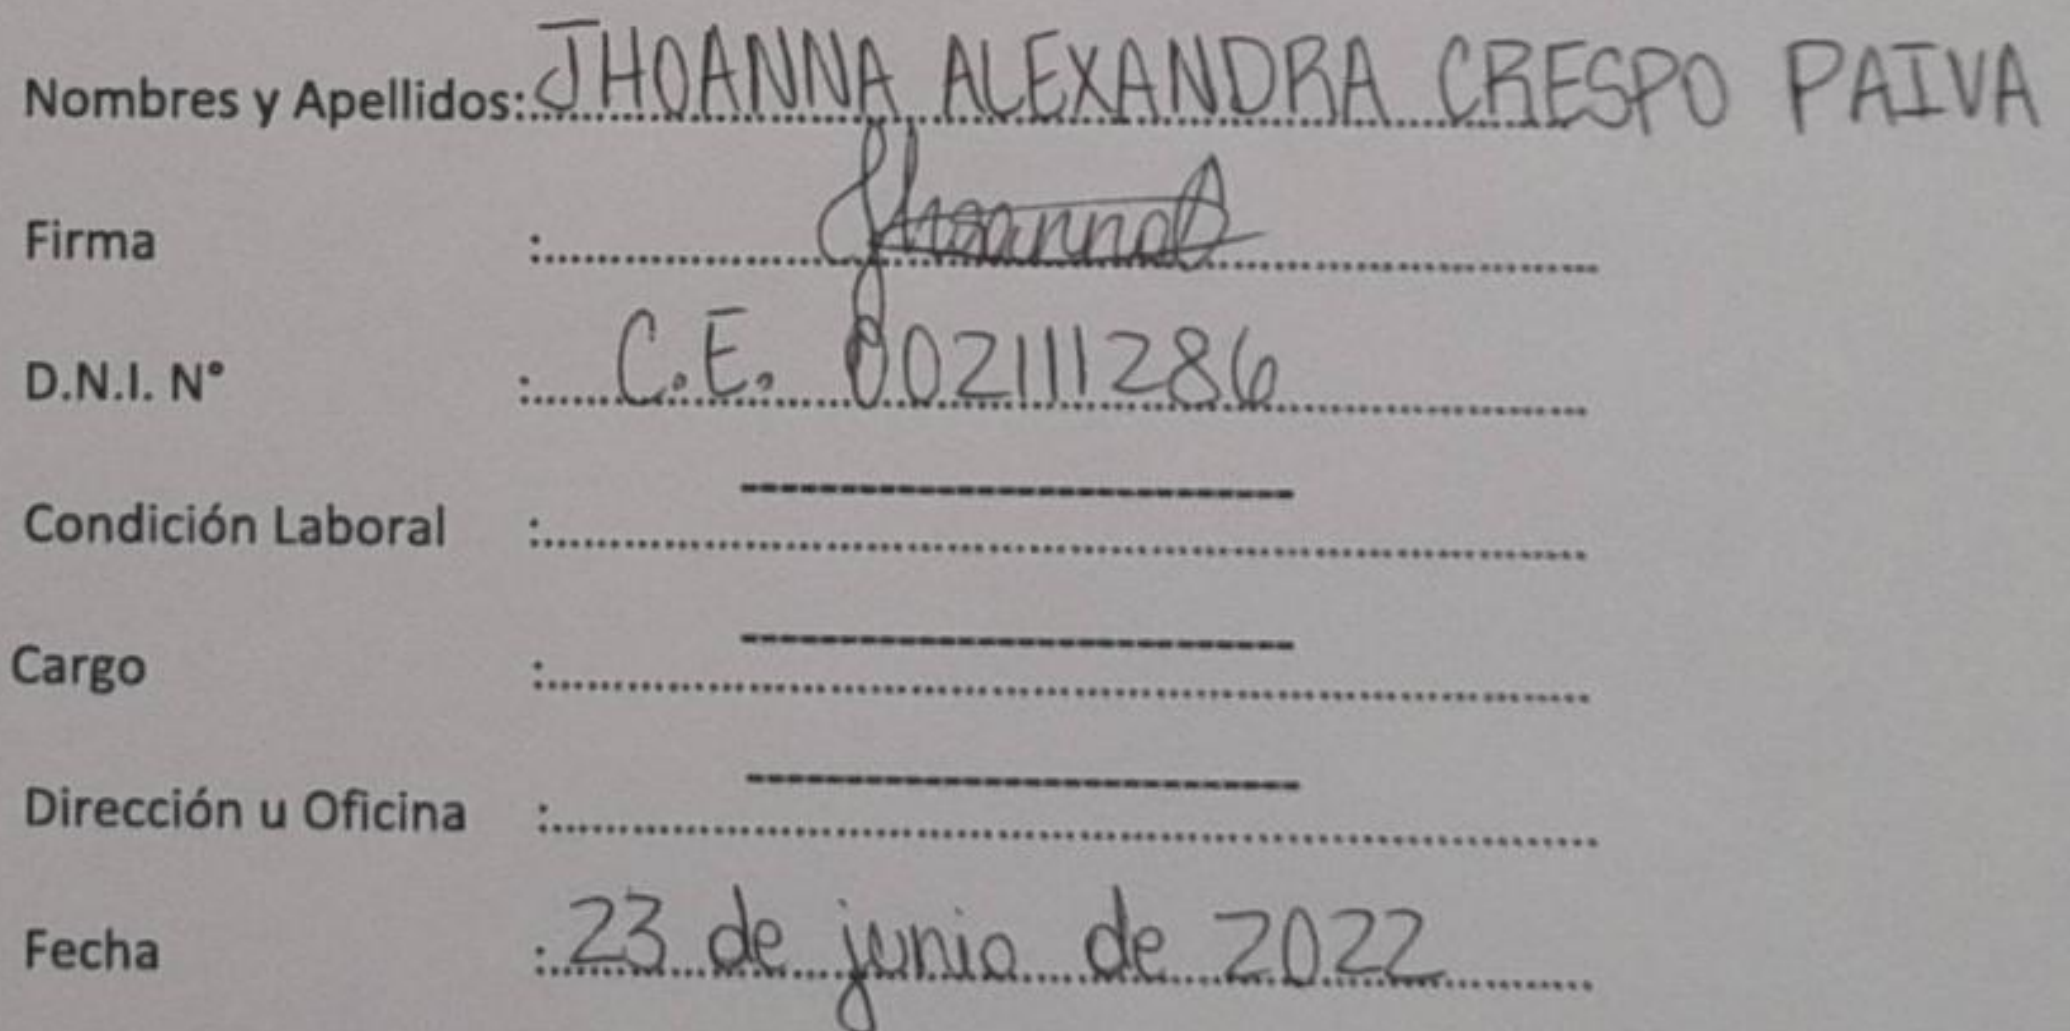 Nombres y Apellidos: JHOANNA ALEXANDRA CRESPO PAIVA
Firma : Jhoanna
D.N.I. N° : C.E. 002111286
Condición Laboral : ----------------------------
Cargo : ----------------------------
Dirección u Oficina : ----------------------------
Fecha : 23 de junio de 2022